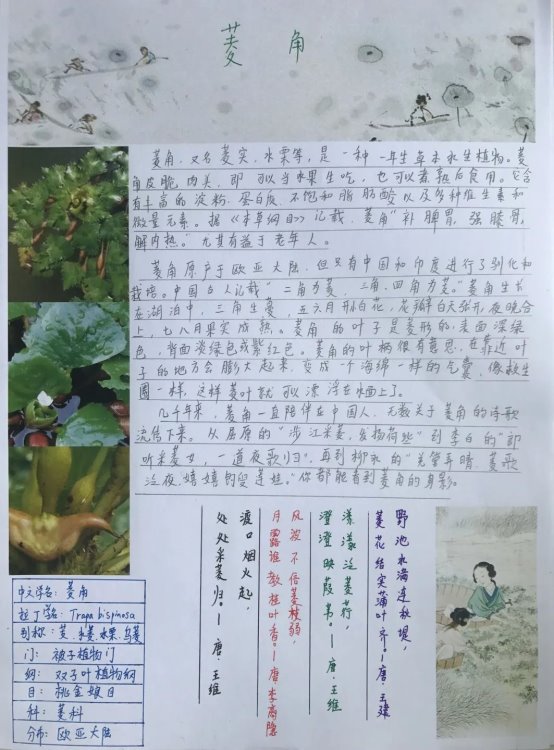 菱角
菱角，又名菱实、水栗等，是一种一年生草本水生植物。菱
角皮脆肉美，即可以当水果生吃，也可以煮熟后食用。它含
有丰富的淀粉、蛋白质、不饱和脂肪酸以及多种维生素和
微量元素。据《本草纲目》记载，菱角"补脾胃，强膝骨，
解内热。"尤其有益于老年人。
菱角原产于欧亚大陆，但只有中国和印度进行了驯化和
栽培。中国古人记载"二角为菱，三角、四角为芰。"菱角生长
在湖泊中，三角生菱，五六月开小白花，花瓣白天张开，夜晚合
上，七八月果实成熟。菱角的叶子是菱形的，表面深绿
色，背面淡绿色或紫红色。菱角的叶柄很有意思，在靠近叶
子的地方会膨大起来，变成一个海绵一样的气囊，像救生
圈一样，这样菱叶就可以漂浮在水面上了。
几千年来，菱角一直陪伴在中国人，无数关于菱角的诗歌
流传下来。从屈原的"涉江采菱，发扬荷些"到李白的"郎
听采菱女，一道夜歌归"，再到柳永的"羌管弄晴，菱歌
泛夜，嬉嬉钓叟莲娃。"你都能看到菱角的身影。
野池水满连秋堤，
菱花结实蒲叶齐。—唐·王建
漾漾泛菱荇，
澄澄映葭苇。—唐·王维
风波不信菱枝弱，
月露谁教桂叶香。—唐·李商隐
渡口烟火起，
处处采菱归。—唐·王维
中文学名：菱角
拉丁学名：Trapa bispinosa
别称：芰、水菱、水栗、乌菱
门：被子植物门
纲：双子叶植物纲
目：桃金娘目
科：菱科
分布：欧亚大陆